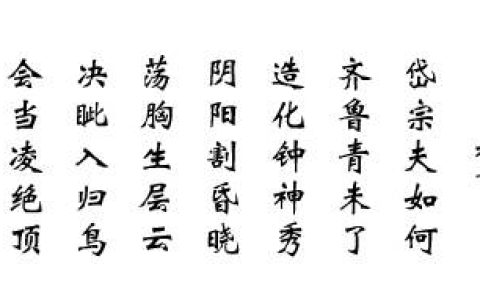 岱宗夫如何
齐鲁青未了
造化钟神秀
阴阳割昏晓
荡胸生层云
决眦入归鸟
会当凌绝顶